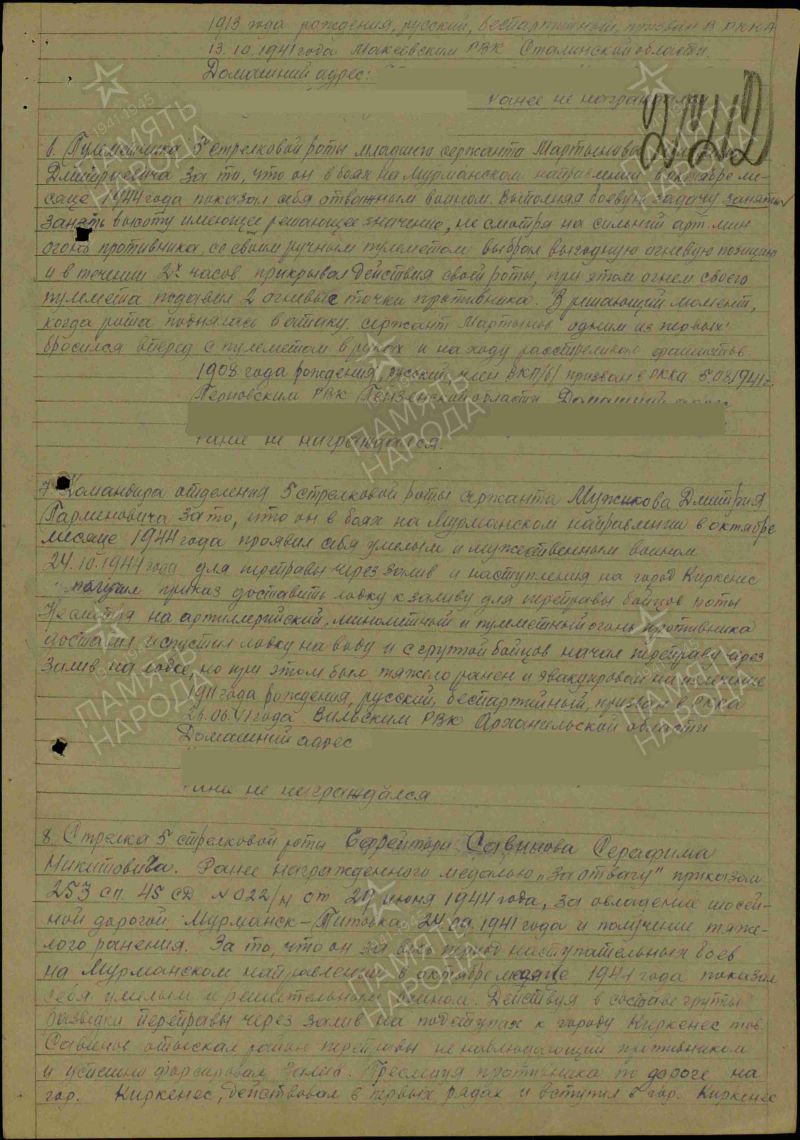 1913 года рождения, русский, беспартийный, призван в РККА
13.10.1941 года Макеевским РВК Сталинской области.
Домашний адрес:
ранее не награждался
6. Пулеметчика 5 стрелковой роты младшего сержанта Мартынова
Дмитриевича за то, что он в боях на Мурманском направлении в октябре ме-
сяце 1944 года показал себя отважным воином. Выполняя боевую задачу занять
занять высоту имеющее решающее значение, не смотря на сильный арт. мин
огонь противника, со своим ручным пулеметом выбрал выгодную огневую позицию
и в течении 2х часов прикрывал действия своей роты, при этом огнем своего
пулемета подавил 2 огневые точки противника. В решающий момент,
когда рота поднялась в атаку. сержант Мартынов одним из первых
бросился вперед с пулеметом в руках и на ходу расстреливал фашистов.
1908 года рождения, русский, член ВКП/б/ призван в РККА 5.08.1941 г.
РВК Пензенской области Домашний адрес
ранее не награждался.
7. Командира отделения 5 стрелковой роты сержанта Мужикова Дмитрия
Парменовича за то, что он в боях на Мурманском направлении в октябре
месяце 1944 года проявил себя умелым и мужественным воином
24.10.1944 года для переправы через залив и наступления на город Киркенес
получил приказ доставить лодку к заливу для переправы бойцов роты
Несмотря на артиллерийский, минометный и пулеметный огонь противника
доставил и спустил лодку на воду и с группой бойцов начал переправу через
залив на лодке, но при этом было тяжело ранен и эвакуирован на излечение
1911 года рождения, русский, беспартийный, призван в РККА
26.06.41 года Вильским РВК Архангельской области
Домашний адрес
ранее не награждался
8. Стрелка 5 стрелковой роты Ефрейтора Савинова Серафима
Никитовича. Ранее награжденного медалью „За отвагу" приказом
253 сп. 45 СД №022/н от 29 июня 1944 года, за овладение шоссей-
ной дорогой Мурманск – Титовка 1941 года и получении тяже-
лого ранения. За то, что он за весь период наступательных боев
на Мурманском направлении в октябре месяце 1944 года показал
себя умелым и решительным воином. Действуя в составе группы
разведки переправы через залив на подступах к городу Киркенес тов.
Савинов отыскал район переправы не наблюдающий противником
и успешно форсировал залив. Преследуя противника по дороге на
гор. Киркенес, действовал в первых рядах и вступил в гор. Киркенес
ПАМЯТЬ НАРОДА
1941-1945